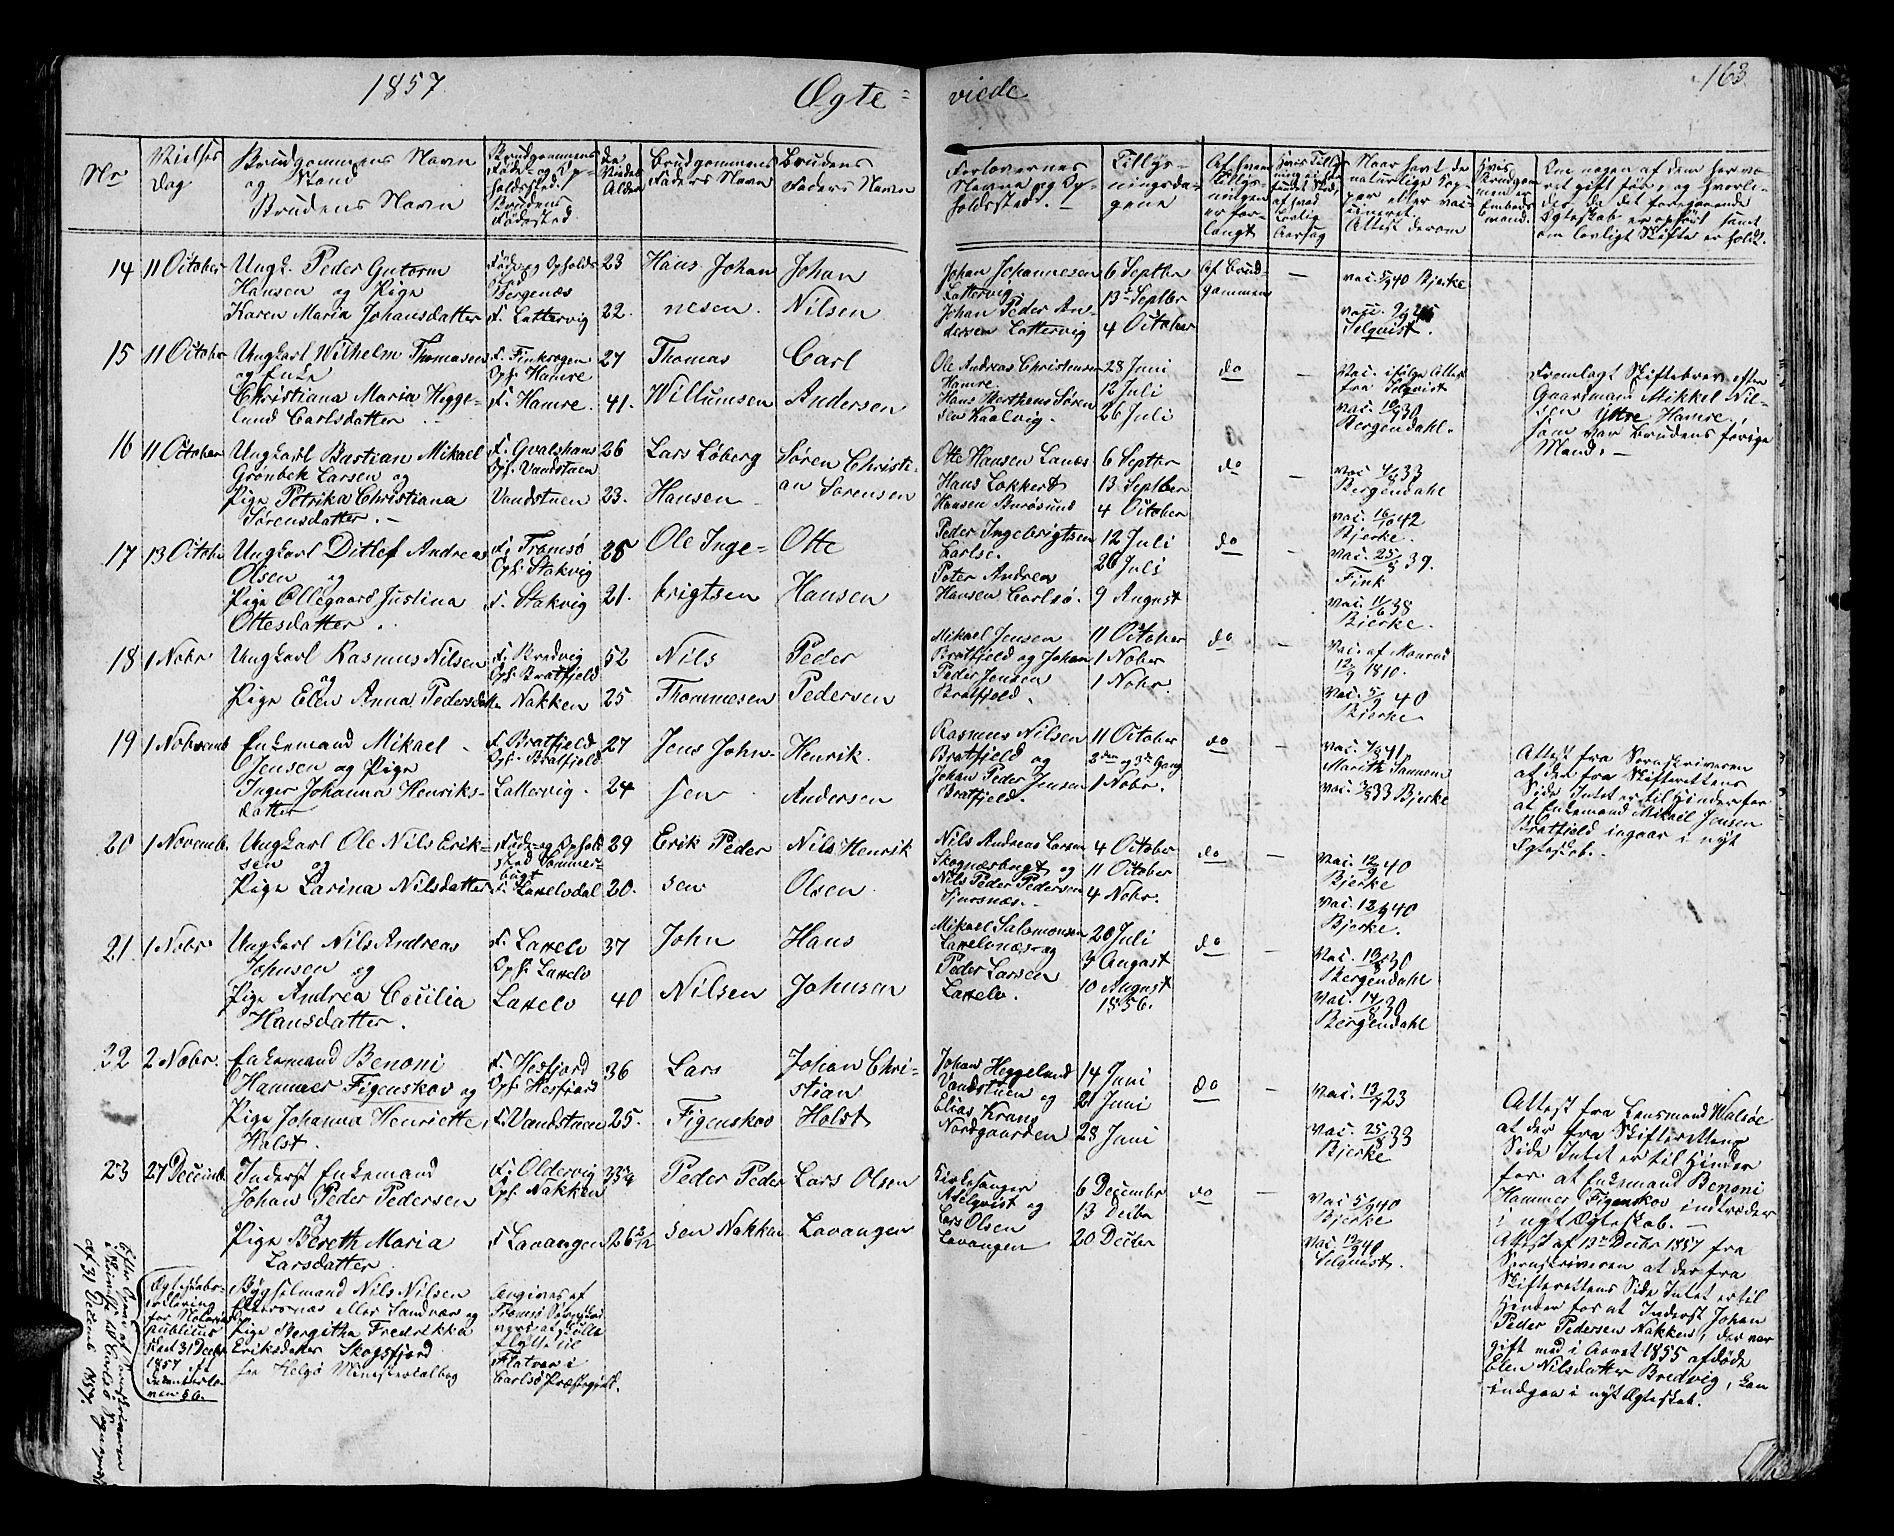 1857
Ægte=
viede
163.
Nr
Vielses
dag
Brudgommens Navn
og Stand
Brudens Navn
Brudgommens
Føde- og Op-
holdssted.
Brudens
Fødested
De
Viedes
Alder
Brudgommens
Faders Navn
Brudens
Faders Navn
Forlovernes
Navne og Op-
holdssted. -
Tillys-
ningsda-
gene
Af hvem
Tillys-
ningen
er for-
langt
Naar havt de
naturlige Kop-
per eller vac-
cineret.
Attest derom
Hvis
Brudgom-
men er
Embeds-
mand.
Om nogen af dem har væ-
ret gift før, og hvorle-
des da det foregaaende
Ægteskab er ophørt samt
om lovligt Skifte er holdt.
14
11 October
Ungk. Peder Gutorm
Hansen og Pige
Karen Maria Johansdatter
Føde og Opholds
Bergenæs
F. Lattervig
23
22.
Hans Johan
nesen
Johan
Nilsen
Johan Johannesen
Lattervig
Johan Peder An-
dersen Lattervig
6 Septbr
13de Septbr
4 October
Af Brud-
gommen
—
vac. 5/9 40 Bjerke
Selqvist.
15
11 Octobr
Ungkarl Wilhelm Thomasen
og Enke
Christiana Maria Hegge-
lund Carlsdatter. -
F. Finkrogen
Oph. Hamre
F. Hamre.
27
41.
Thomas
Willumsen
Carl
Andersen
Ole Andreas Christensen
Hamre
Hans Morthens Søren
sen Kaalvig.
28 Juni
12 Juli
26 Juli
do
—
Vac. ifølge Attest
fra Selqvist
Vac. 10/8 30
Bergendahl.
Fremlagt Skiftebrev efter
Gaardmand Mikkel Nil-
sen Ytre Hamre,
som var Brudens forige
Mand. -
16
11 October
Ungkarl Bastian Mikael
Grønbek Larsen og
Pige Petrika Christiana
Sørensdatter. -
F. Gvalshaus
Oph. Vandstuen
Vandstuen
26
23.
Lars Løberg
Hansen
Søren Christi-
an Sørensen
Otte Hansen Lanæs
Hans Lokkert
Hansen Burøsund
6 Septbr
13 Septbr
4 October
do
—
Vac. 4/8 33
Bergendahl
vac. 16/10 42
Bjerke.
17
13 Octobr
Ungkarl Ditlef Andreas
Olsen og
Pige Ollegaard Justina
Ottesdatter.
F. Tromsø
Oph. Stakvig
F. Stakvig
25
21.
Ole Inge-
brigtsen
Otte
Hansen
Peder Ingebrigtsen
Carlsø.
Peter Andrea
Hansen Carlsø.
12 Juli
26 Juli
9 August
do
—
Vac. 25/8 39.
Fink
Vac. 11/6 38
Bjerke.
18
1 Nobr
Ungkarl Rasmus Nilsen
og
Pige Elen Anna Pedersdatt
F. Bredvig
Oph. Bratfjeld
Nakken
52
25
Nils
Thommesen
Peder
Pedersen
Mikael Jensen
Bratfjeld og Johan
Peder Jensen
Bratfjeld.
11 October
1 Nober
1 Nobr.
do
—
Vac. af Monrad
12/9 1810.
Vac. 5/9 40
Bjerke
19
1 Novemb
Enkemand Mikael
Jensen og Pige
Inger Johanna Henriks-
datter
F. Bratfjeld
Oph. Bratfjeld
Lattervig.
27
24
Jens John-
sen
Henrik
Andersen
Rasmus Nilsen
Bratfjeld og
Johan Peder Jensen
Bratfjeld.
11 October
2den og 3die Gang
1 Nobr.
do
—
Vac. 7/9 41
33 Bjerke
Attest fra Sorenskriveren
at der fra Skifterettens
Side Intet er til Hinder for
at Enkemand Mikael Jensen
Bratfjeld ingaar i nyt
Egteskab. -
20
1 Novemb.
Ungkarl Ole Nils Erik-
sen og
Pige Larina Nilsdatter
Føde- og Ophold
sted Sommer-
bugt
F. Laxelvdal
29
20.
Erik Peder
sen
Nils Henrik
Olsen
Nils Andreas Larsen
Skognæsbugt og
Nils Peder Pedersen
Sjursnæs. -
4 October
11 October
4 Nobr.
do
—
Vac. 12/9 40
Bjerke
Vac. 12/9 40
Bjerke.
21.
1 Nobr
Ungkarl Nils Andreas
Johnsen og
Pige Andrea Cecilia
Hansdatter.
F. Laxelv
Oph. Laxelv
Laxelv
37
40
John
Nilsen
Hans
Johnsen
Mikael Salomonsen
Laxelvnæs og
Peder Larsen
Laxelv.
20 Juli
3 August
10 August
1856.
do
—
Vac. 13/8 30
Bergendahl
Vac. 14/8 30
Bergendahl
22
2 Nobr.
Enkemand Benoni
Hammer Figenskov og
Pige Johanna Henriette
Holst.
F. Hesfjord
Oph. Hesfjord
F. Vandstuen
36
25.
Lars
Figenskov
Johan Chri-
stian
Holst
Johan Heggelund
Vandstuen og
Elias Krans
Nordgaarden
14 Juni
21 Juni
28 Juni
do
—
vac. 13/7 23
Vac. 25/8 33
Bjerke
Attest fra Lensmand Walsøe
at der fra Skifterettens
Side Intet er til Hinder
for at Enkemand Benoni
Hammer Figenskov indtræder
i nyt Ægteskab. -
23
27 Decemb.
Inderst Enkemand
Johan Peder Pedersen
og
Pige Bereth Maria
Larsdatter
F. Oldervig
Oph. Nakken
F. Lavangen
Peder Peder
sen Nakken
Lars Olsen
Lavangen
Kirkesanger
Selqvist og
Lars Olsen
Lavangen
6 Decembr
13 Decbr
20 Decbr
do
—
Vac. 5/9 40
Bjerke
Vac. 12/9 40
Selqvist.
Attest af 13de Decbr 1857 fra
Sorenskriveren at der fra
Skifterettens Side Intet er til
Hinder for at Inderst Johan
Peder Pedersen Nakken, der var
gift med i Aaret 1855 afdøde
Elen Nilsdatter Bredvig, kan
indgaa i nyt Ægteskab.
Ægteskabs-
erklæring
for Notarius
publicus
31 Decbr
1857
Bygselmand Nils Nilsen
eller Sandvær og
Pige Bergitha Fredrikka
Eriksdatter Skogsfjord
see Helgø Ministerialbog
Tromsø
flytte til
Flatvær i
Carlsø Præstegjeld.
af 31 Decemb 1857.